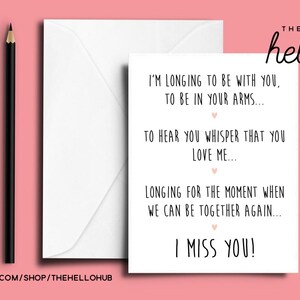 THE
hel
I'M LONGING TO BE WITH YOU,
TO BE IN YOUR ARMS...
TO HEAR YOU WHISPER THAT YOU
LOVE ME...
LONGING FOR THE MOMENT WHEN
WE CAN BE TOGETHER AGAIN...
I MISS YOU!
.COM/SHOP/THEHELLOHUB